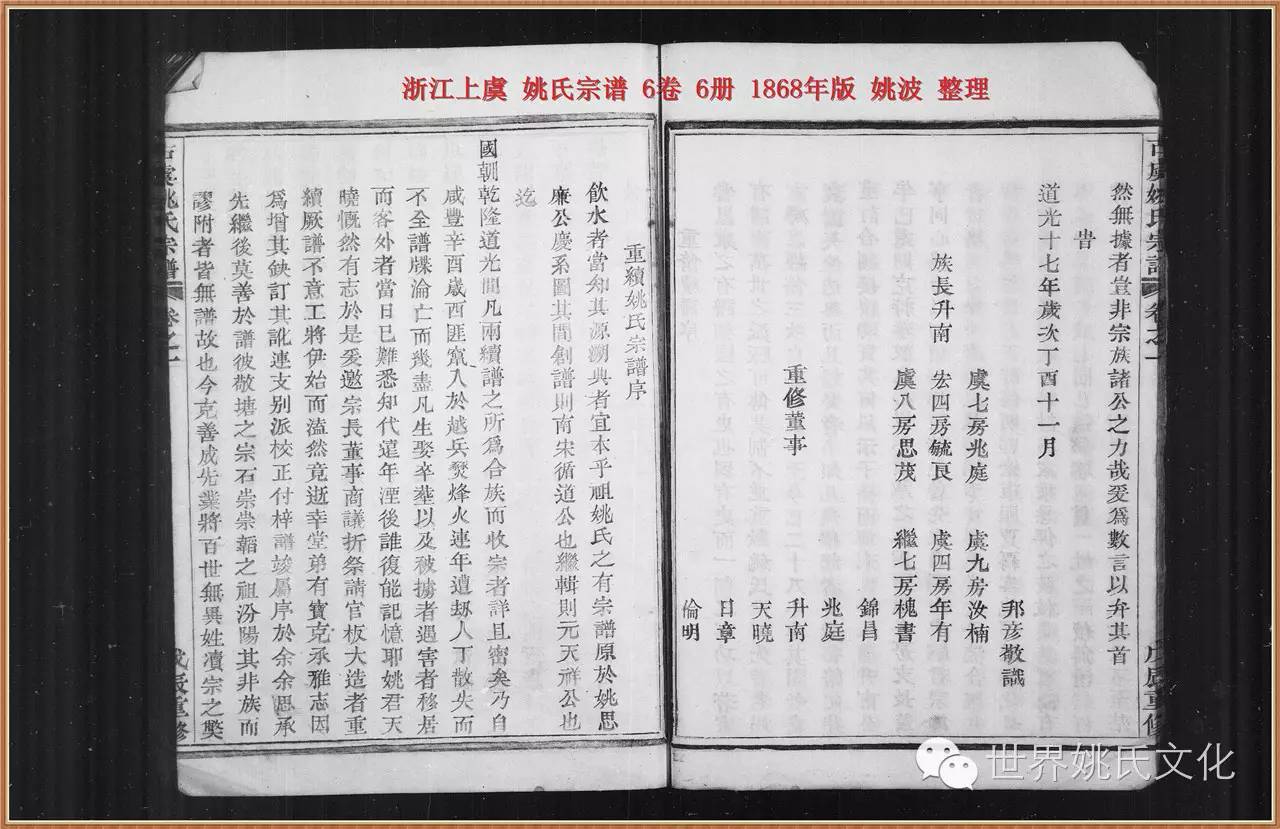 浙江上虞 姚氏宗谱 6卷 6册 1868年版 姚波 整理
古虞姚氏宗譜 卷之一 戊辰重修
然無據者豈非宗族諸公之力哉爰爲數言以弁其首
旹
道光十七年歲次丁酉十一月
邦彦敬識
虞七房兆庭 虞九房汝楠
族長升南 宏四房毓良 虞四房年有
虞八房思茂 繼七房槐書
錦昌
兆庭
重修董事 升南
天曉
日章
倫明
重續姚氏宗譜序
飲水者當知其源溯典者宜本乎祖姚氏之有宗譜原於姚思
廉公慶系圖其間創譜則南宋循道公也繼輯則元天祥公也
迄
國朝乾隆道光間凡兩續譜之所爲合族而收宗者詳且密矣乃自
咸豐辛酉歲西匪竄入於越兵燹烽火連年遭刼人丁散失而
不全譜牒淪亡而幾盡凡生娶卒塟以及被擄者遇害者移居
而客外者當日已難悉知代遠年湮後誰復能記憶耶姚君天
曉慨然有志於是爰邀宗長董事商議折祭請官板大造者重
續厥譜不意工將伊始而溘然竟逝幸堂弟有寶克承雅志因
爲增其缺訂其訛連支別派校正付梓譜竣屬序於余余思承
先繼後莫善於譜彼敬塘之宗石崇崇韜之祖汾陽其非族而
謬附者皆無譜故也今克善成先業將百世無異姓瀆宗之獘
古虞姚氏宗譜 卷之一 戊辰重修
世界姚氏文化